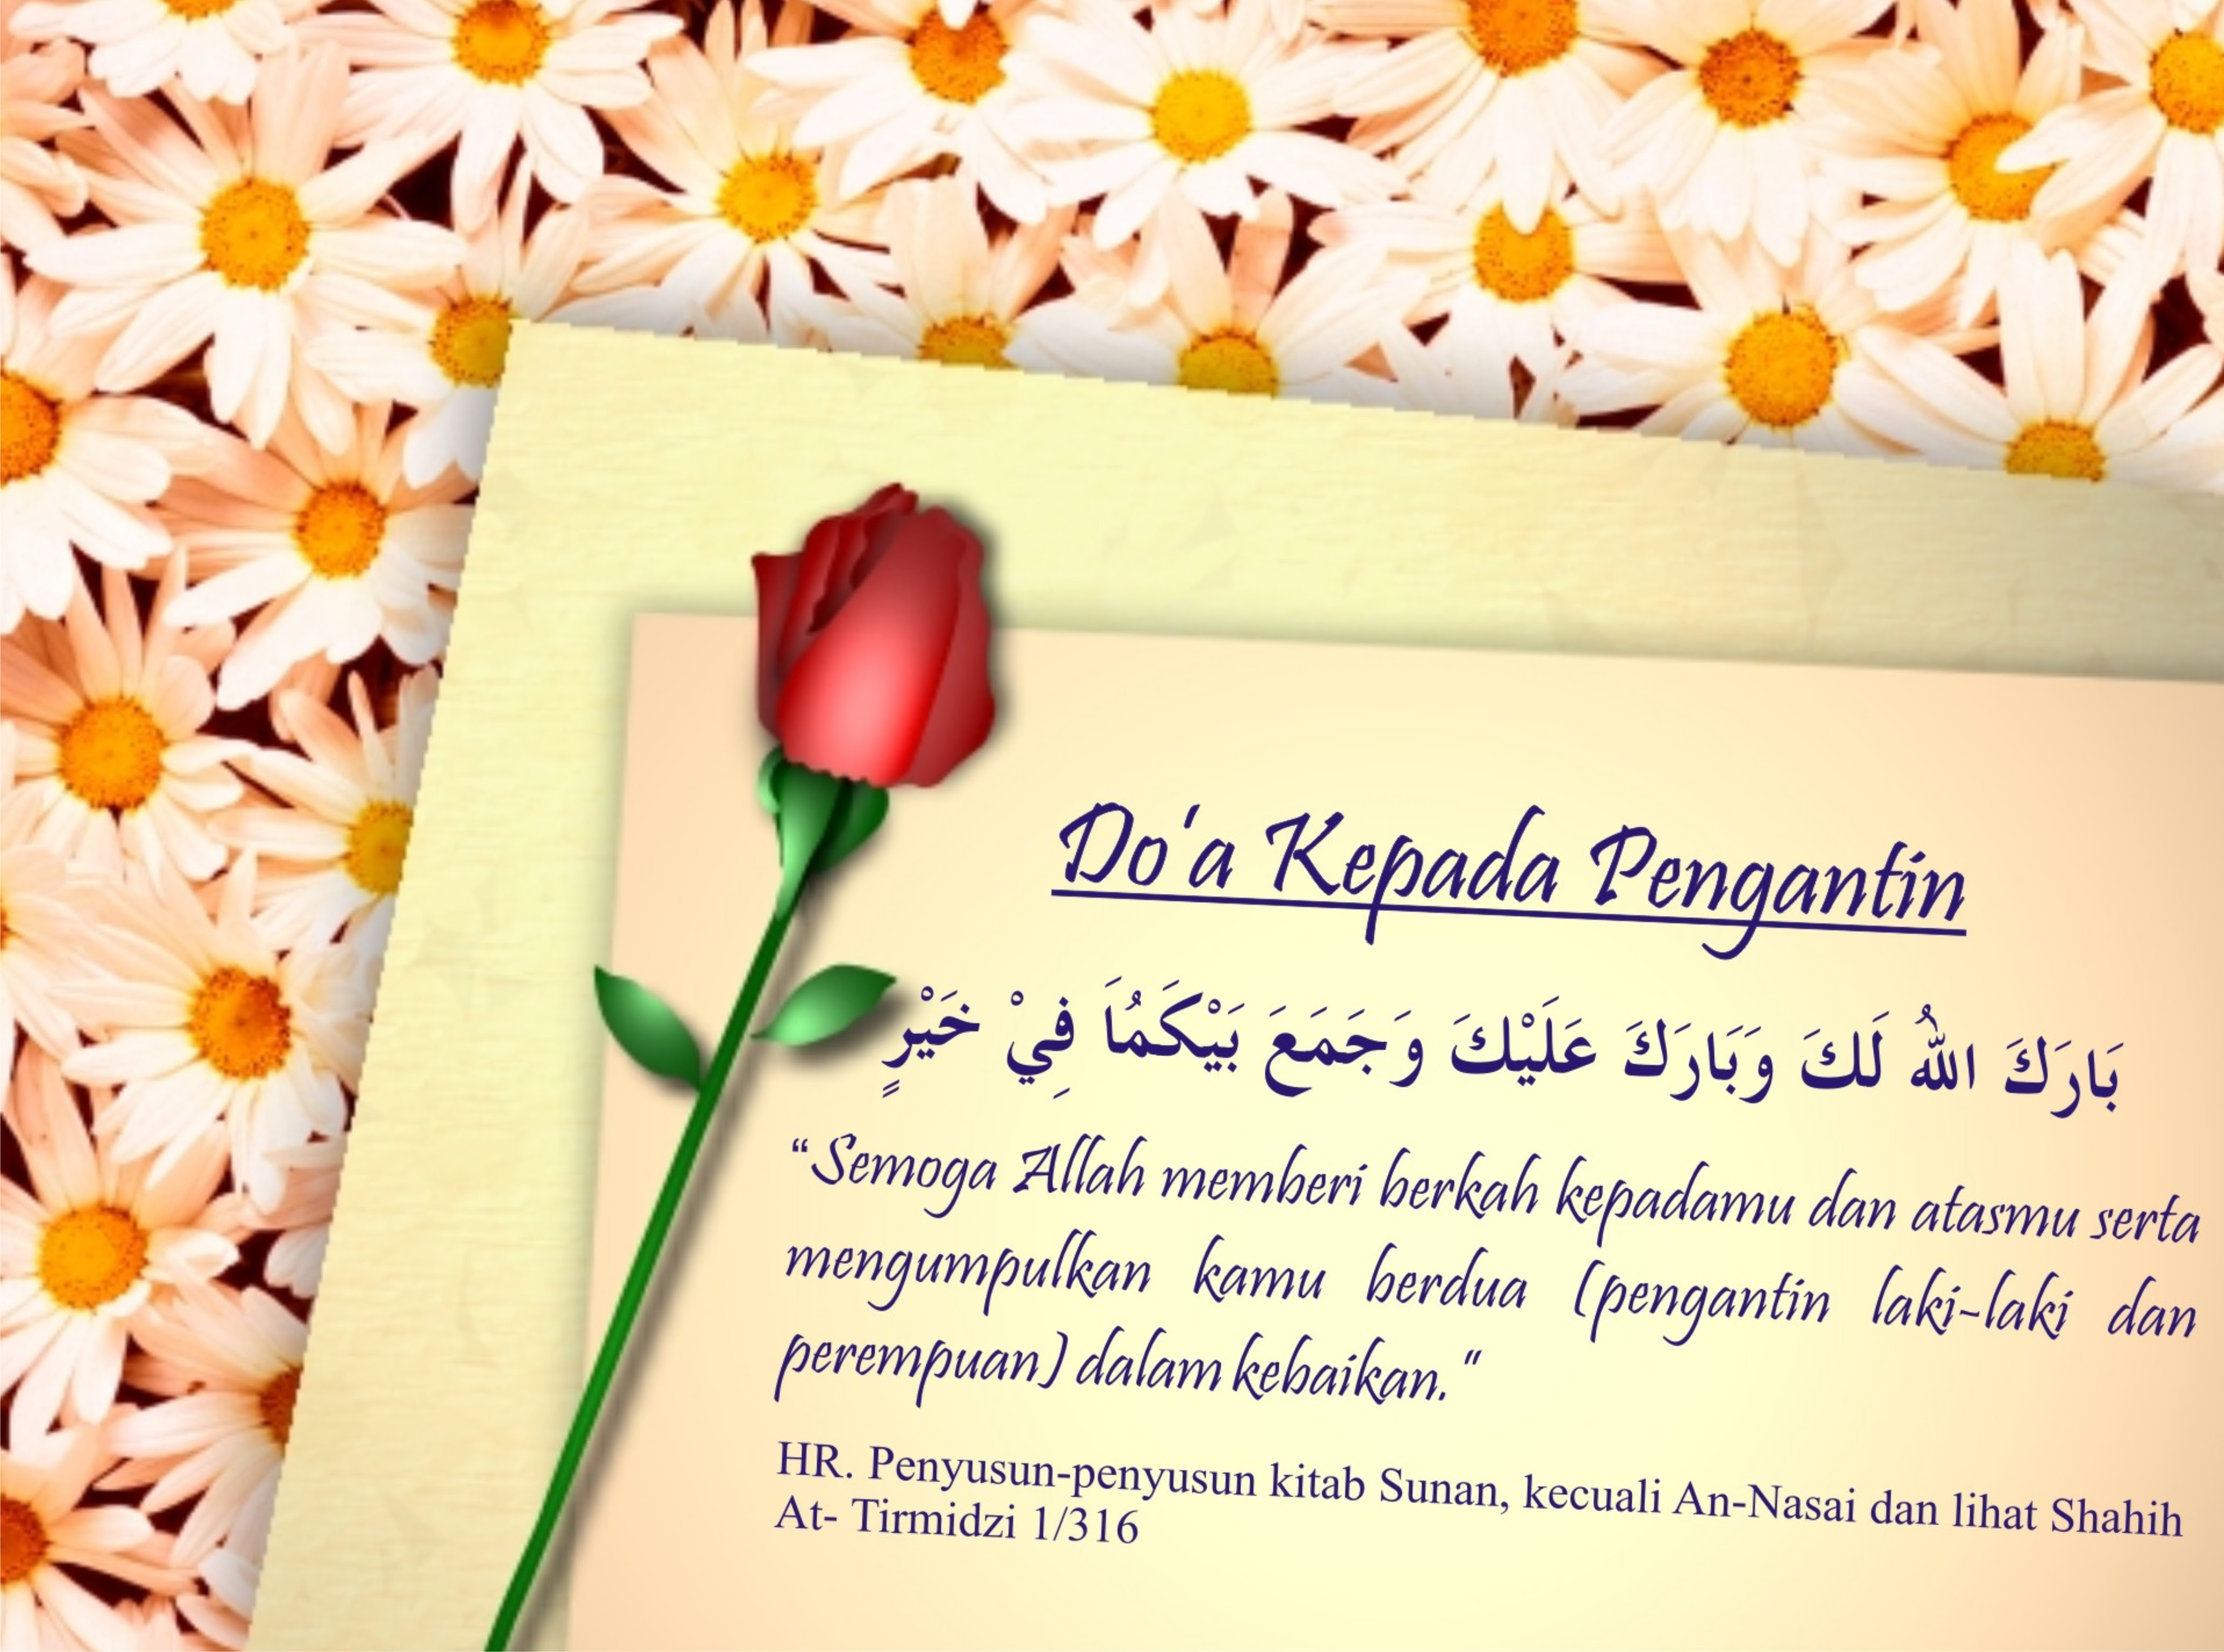 Do'a Kepada Pengantin
بَارَكَ اللهُ لَكَ وَبَارَكَ عَلَيْكَ وَجَمَعَ بَيْكَمُاَ فِيْ خَيْرٍ
“Semoga Allah memberi berkah kepadamu dan atasmu serta
mengumpulkan kamu berdua (pengantin laki-laki dan
perempuan) dalam kebaikan.“
HR. Penyusun-penyusun kitab Sunan, kecuali An-Nasai dan lihat Shahih
At- Tirmidzi 1/316